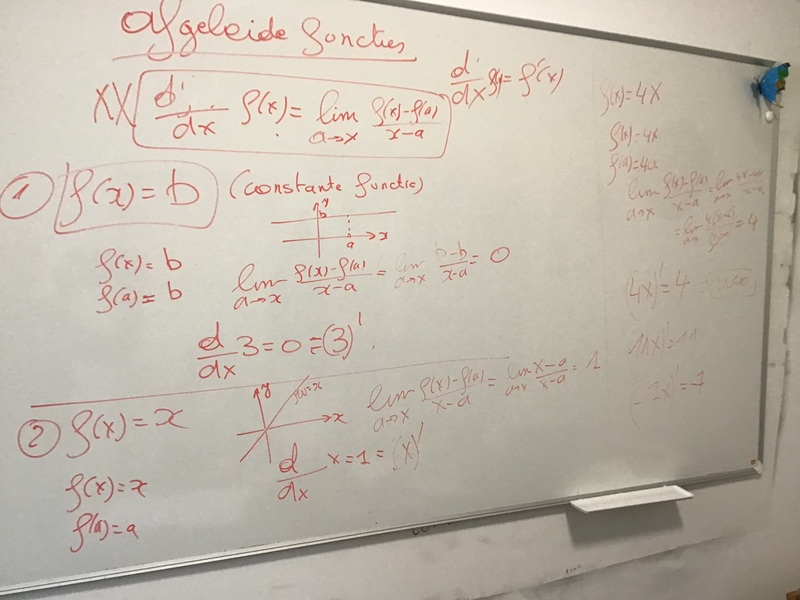 Afgeleide functies
XX d/dx f(x) = lim a→x (f(x)-f(a))/(x-a)
d/dx f(x) = f'(x)
① f(x) = b (constante functie)
y
b
a x
f(x) = b
f(a) = b
lim a→x (f(x)-f(a))/(x-a) = lim a→x (b-b)/(x-a) = 0
d/dx 3 = 0 = (3)'
② f(x) = x
y
f(x)=x
x
lim a→x (f(x)-f(a))/(x-a) = lim a→x (x-a)/(x-a) = 1
f(x) = x
f(a) = a
d/dx x = 1 = (x)'
f(x) = 4x
f(x) = 4x
f(a) = 4a
lim a→x (f(x)-f(a))/(x-a) = lim a→x (4x-4a)/(x-a)
= 4
(4x)' = 4